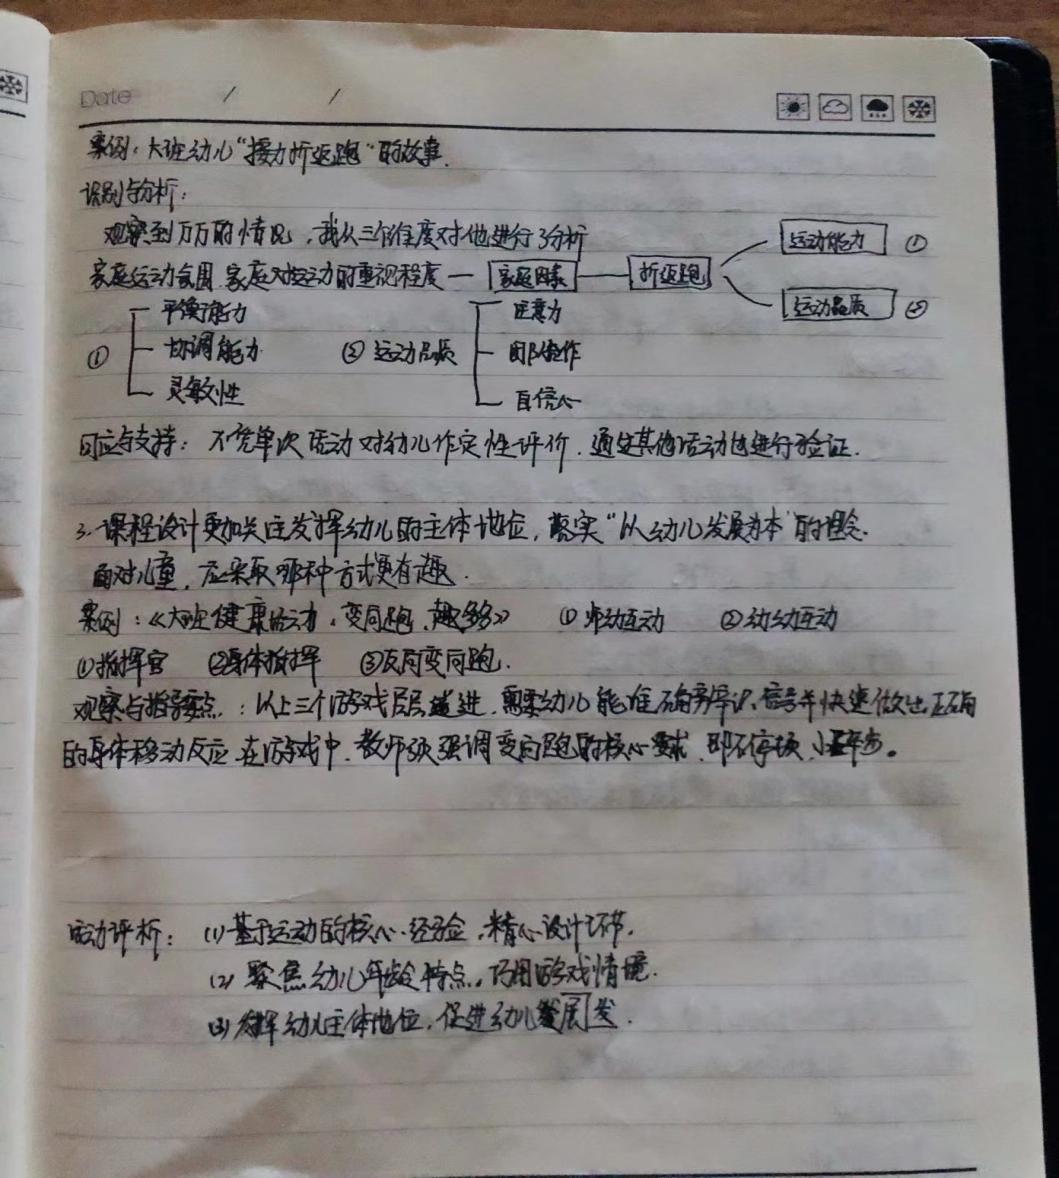 Date / /
案例：大班幼儿“接力折返跑”的故事.
识别与分析：
观察到万万的情况，我从三个维度对他进行了分析
家庭运动氛围、家庭对运动的重视程度 — 家庭因素 — 折返跑 运动能力 ①
运动品质 ②
① 平衡能力 协调能力 灵敏性
② 运动品质 注意力 团队合作 自信心
回应与支持：不凭单次活动对幼儿作定性评价．通过其他活动也进行验证．
3. 课程设计更加关注发挥幼儿的主体地位，落实“以幼儿发展为本”的理念．
面对儿童，应采取哪种方式更有趣．
案例：《大班健康活动：变向跑、趣多多》 ①师幼互动 ②幼幼互动
①指挥官 ②身体指挥 ③反向变向跑．
观察与指导要点：以上三个游戏层层递进，需要幼儿能准确辨识信号并快速做出正确
的身体移动反应．在游戏中，教师须强调变向跑的核心要求，即不停顿、小碎步。
活动评析：(1)基于运动的核心经验，精心设计环节．
(2) 聚焦幼儿年龄特点，巧用游戏情境．
(3)发挥幼儿主体地位，促进幼儿发展